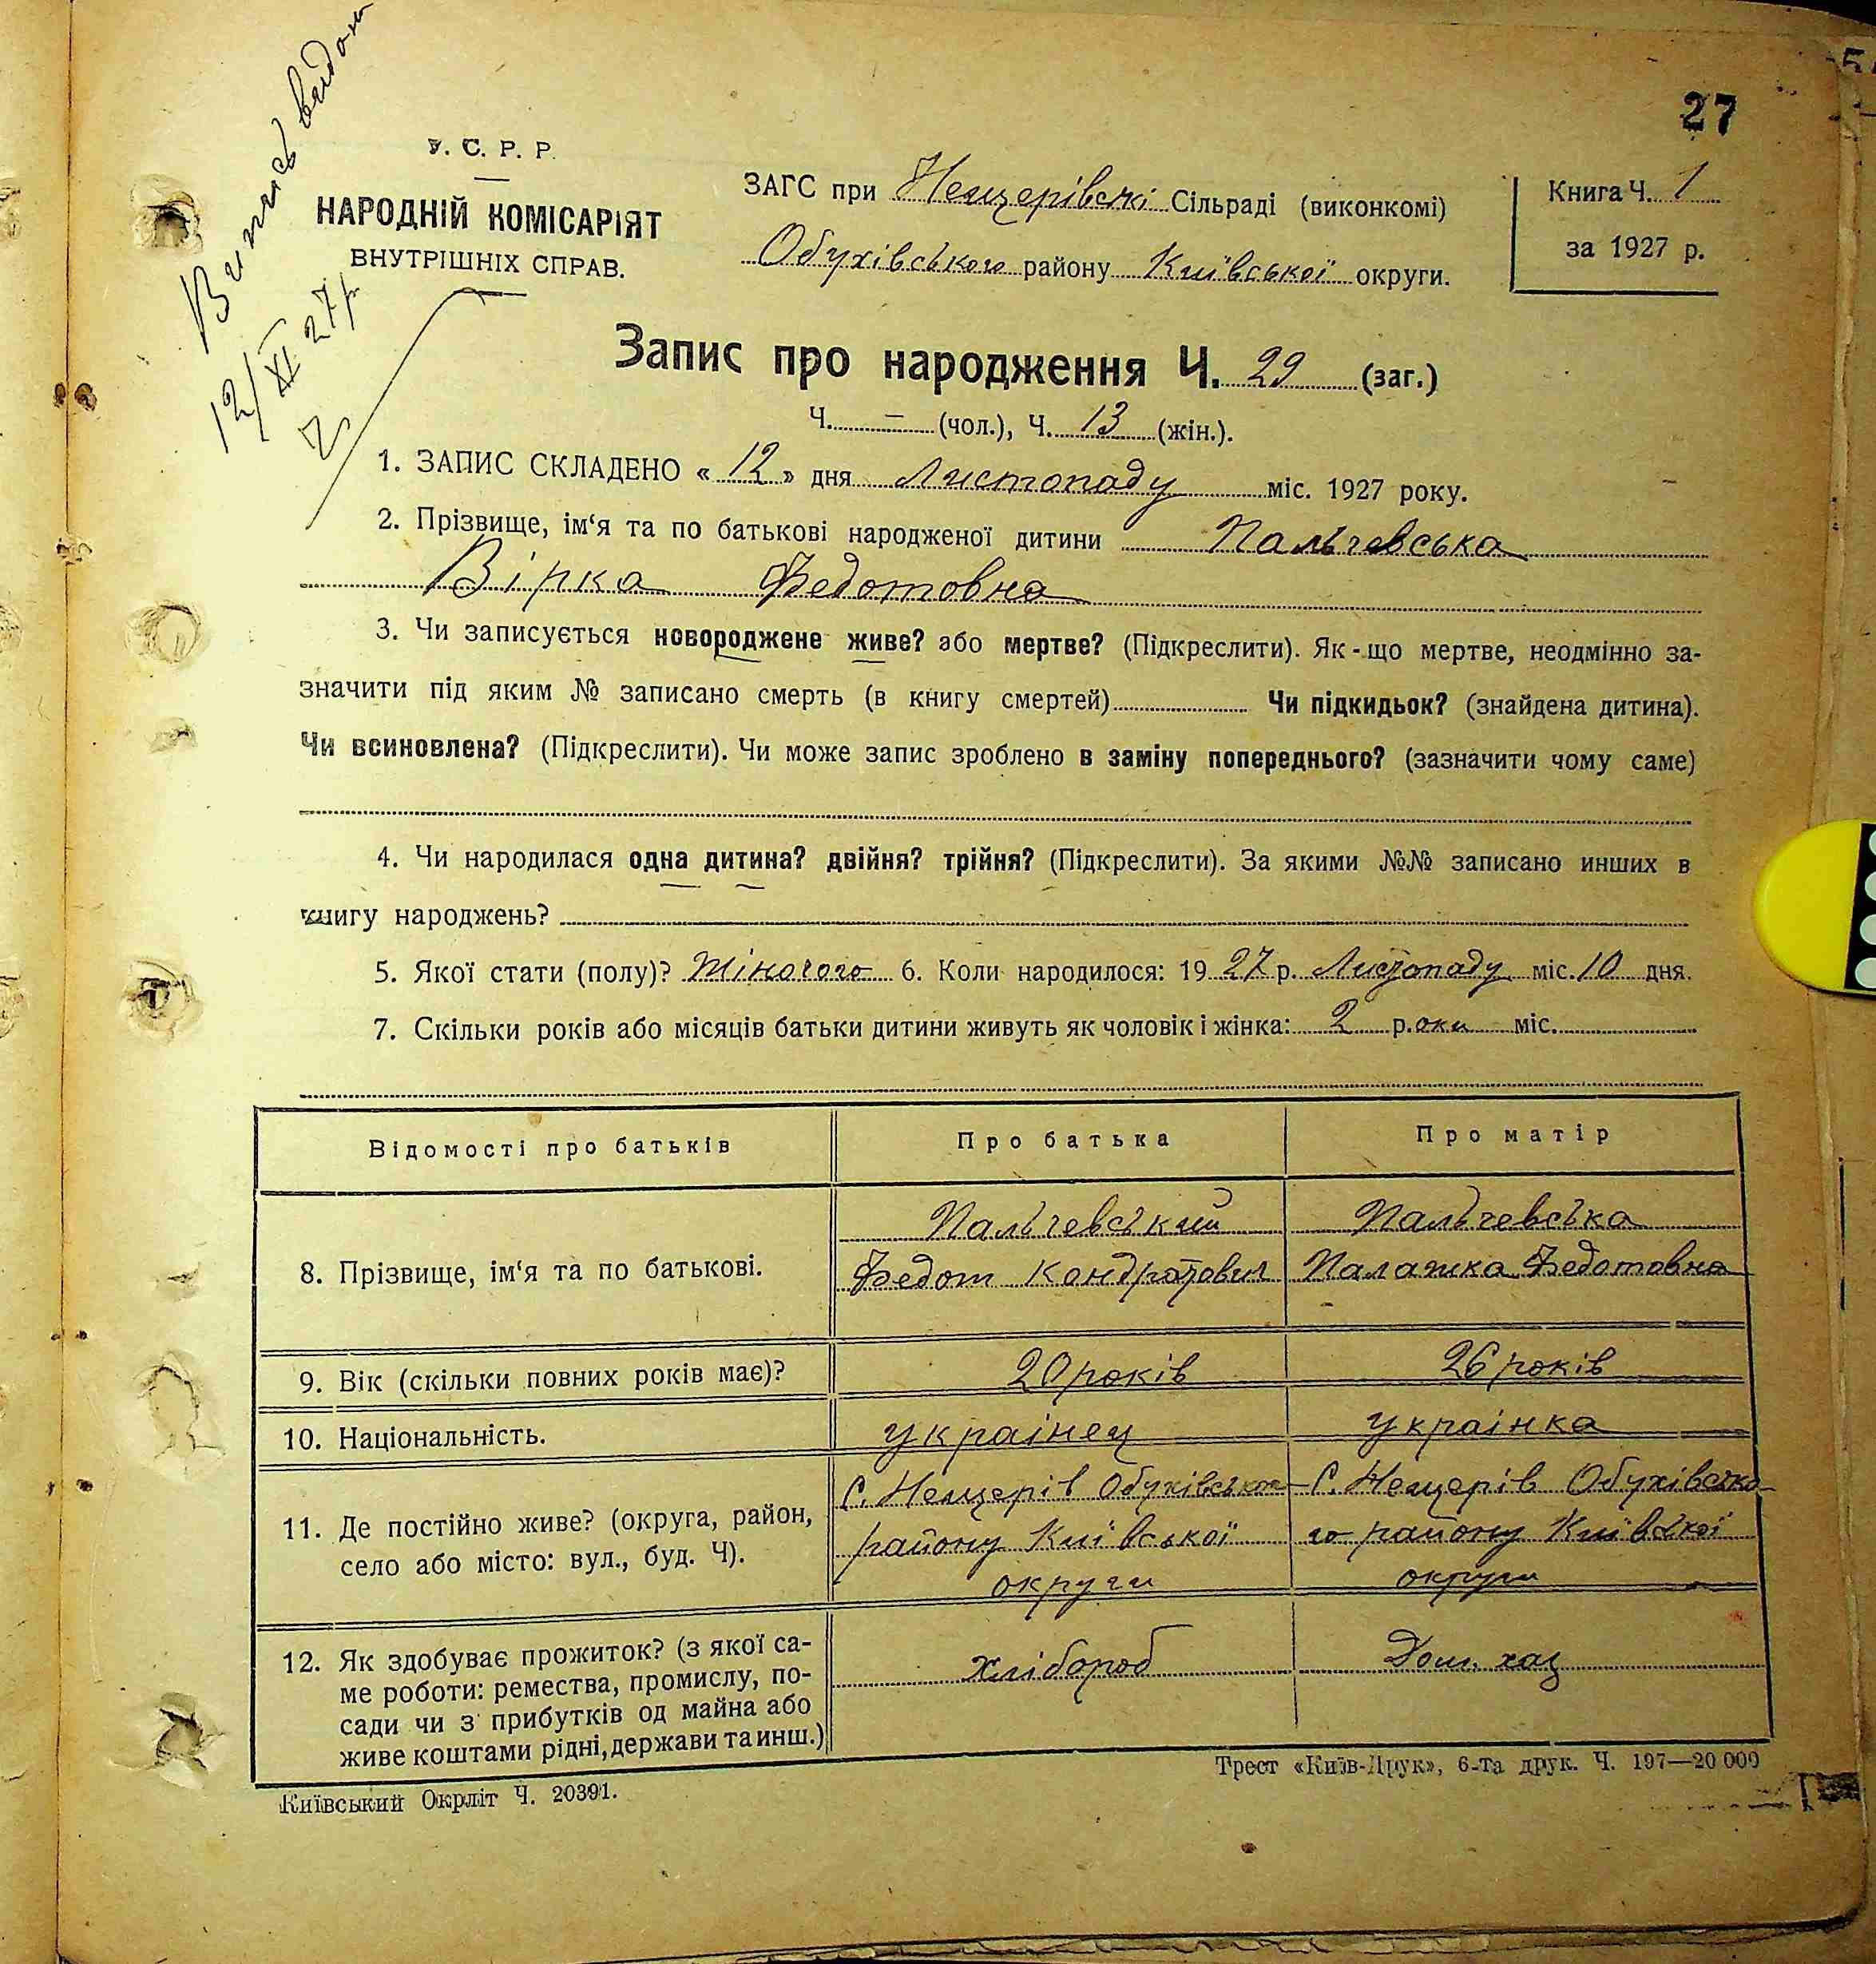 27
Випись видана
12/XI 27р
У. С. Р. Р.
НАРОДНІЙ КОМІСАРІЯТ
ВНУТРІШНІХ СПРАВ.
ЗАГС при Нещерівскі Сільраді (виконкомі)
Обухівського району Київської округи.
Книга Ч. 1
за 1927 р.
Запис про народження Ч. 29 (заг.)
Ч. – (чол.), Ч. 13 (жін.).
1. ЗАПИС СКЛАДЕНО « 12 » дня Листопаду міс. 1927 року.
2. Прізвище, ім‘я та по батькові народженої дитини Пальчевська
Вірка Федотовна
3. Чи записується новороджене живе? або мертве? (Підкреслити). Як-що мертве, неодмінно за-
значити під яким № записано смерть (в книгу смертей) Чи підкидьок? (знайдена дитина).
Чи всиновлена? (Підкреслити). Чи може запис зроблено в заміну попереднього? (зазначити чому саме)
4. Чи народилася одна дитина? двійня? трійня? (Підкреслити). За якими №№ записано инших в
книгу народжень?
5. Якої стати (полу)? Жіночого 6. Коли народилося: 19 27 р. Листопаду міс. 10 дня.
7. Скільки років або місяців батьки дитини живуть як чоловік і жінка: 2 р.оки міс.
Відомості про батьків Про батька Про матір
8. Прізвище, ім‘я та по батькові.
Пальчевський
Федот Кондратович
Пальчевська
Палажка Федотовна
9. Вік (скільки повних років має)? 20 років 26 років
10. Національність. украінец украінка
11. Де постійно живе? (округа, район,
село або місто: вул., буд. Ч).
С. Нещерів Обухівського
району Київської
округи
С. Нещерів Обухівсько
го району Київської
округи
12. Як здобуває прожиток? (з якої са-
ме роботи: ремества, промислу, по-
сади чи з прибутків од майна або
живе коштами рідні, держави та инш.)
хлібороб
Дом. хаз
Київський Окрліт Ч. 20391.
Трест «Київ-Друк», 6-та друк. Ч. 197—20 000